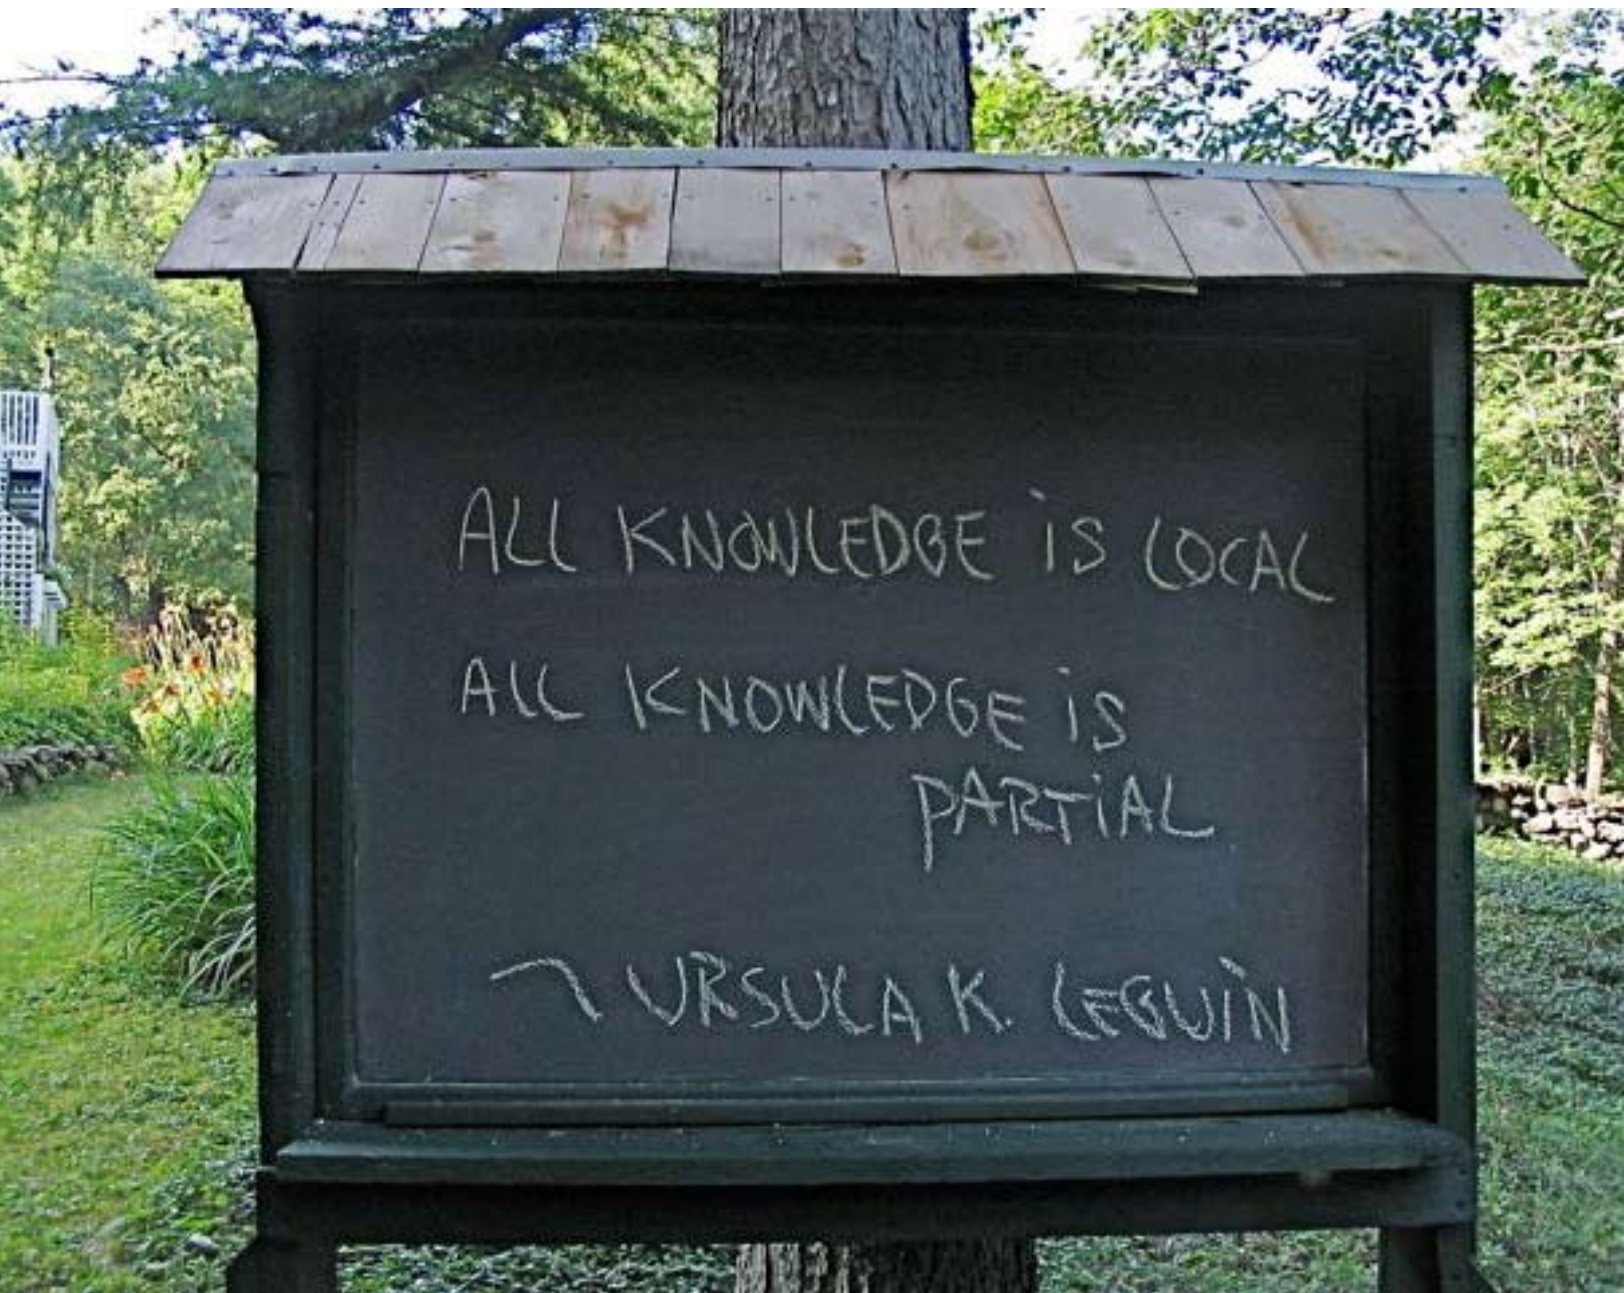 ALL KNOWLEDGE iS LOCAL
ALL KNOWLEDGE iS
PARTiAL
~ URSULA K. LEGUiN